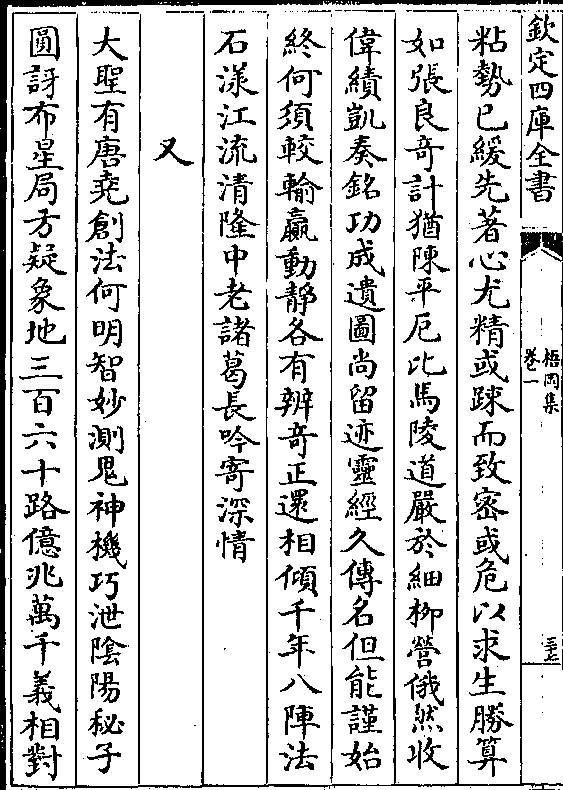 欽定四庫全書
梧岡集
卷一
三十七
粘勢已緩先著心尤精或踈而致密或危以求生勝算
如張良竒計猶陳平厄比馬陵道嚴於細柳營俄然收
偉績凱奏銘功成遺圖尚留迹靈經久傳名但能謹始
終何須較輸贏動靜各有辨竒正還相傾千年八陣法
石漾江流清隆中老諸葛長吟寄深情
又
大聖有唐堯創法何明智妙測鬼神機巧泄陰陽秘子
圓訝布星局方疑象地三百六十路億兆萬千義相對